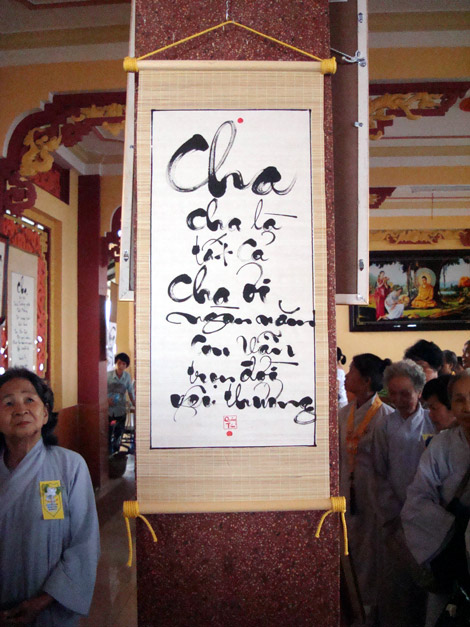 Cha
cha là
tất cả
cha ơi
ngàn năm
con vẫn
trọn đời
yêu thương